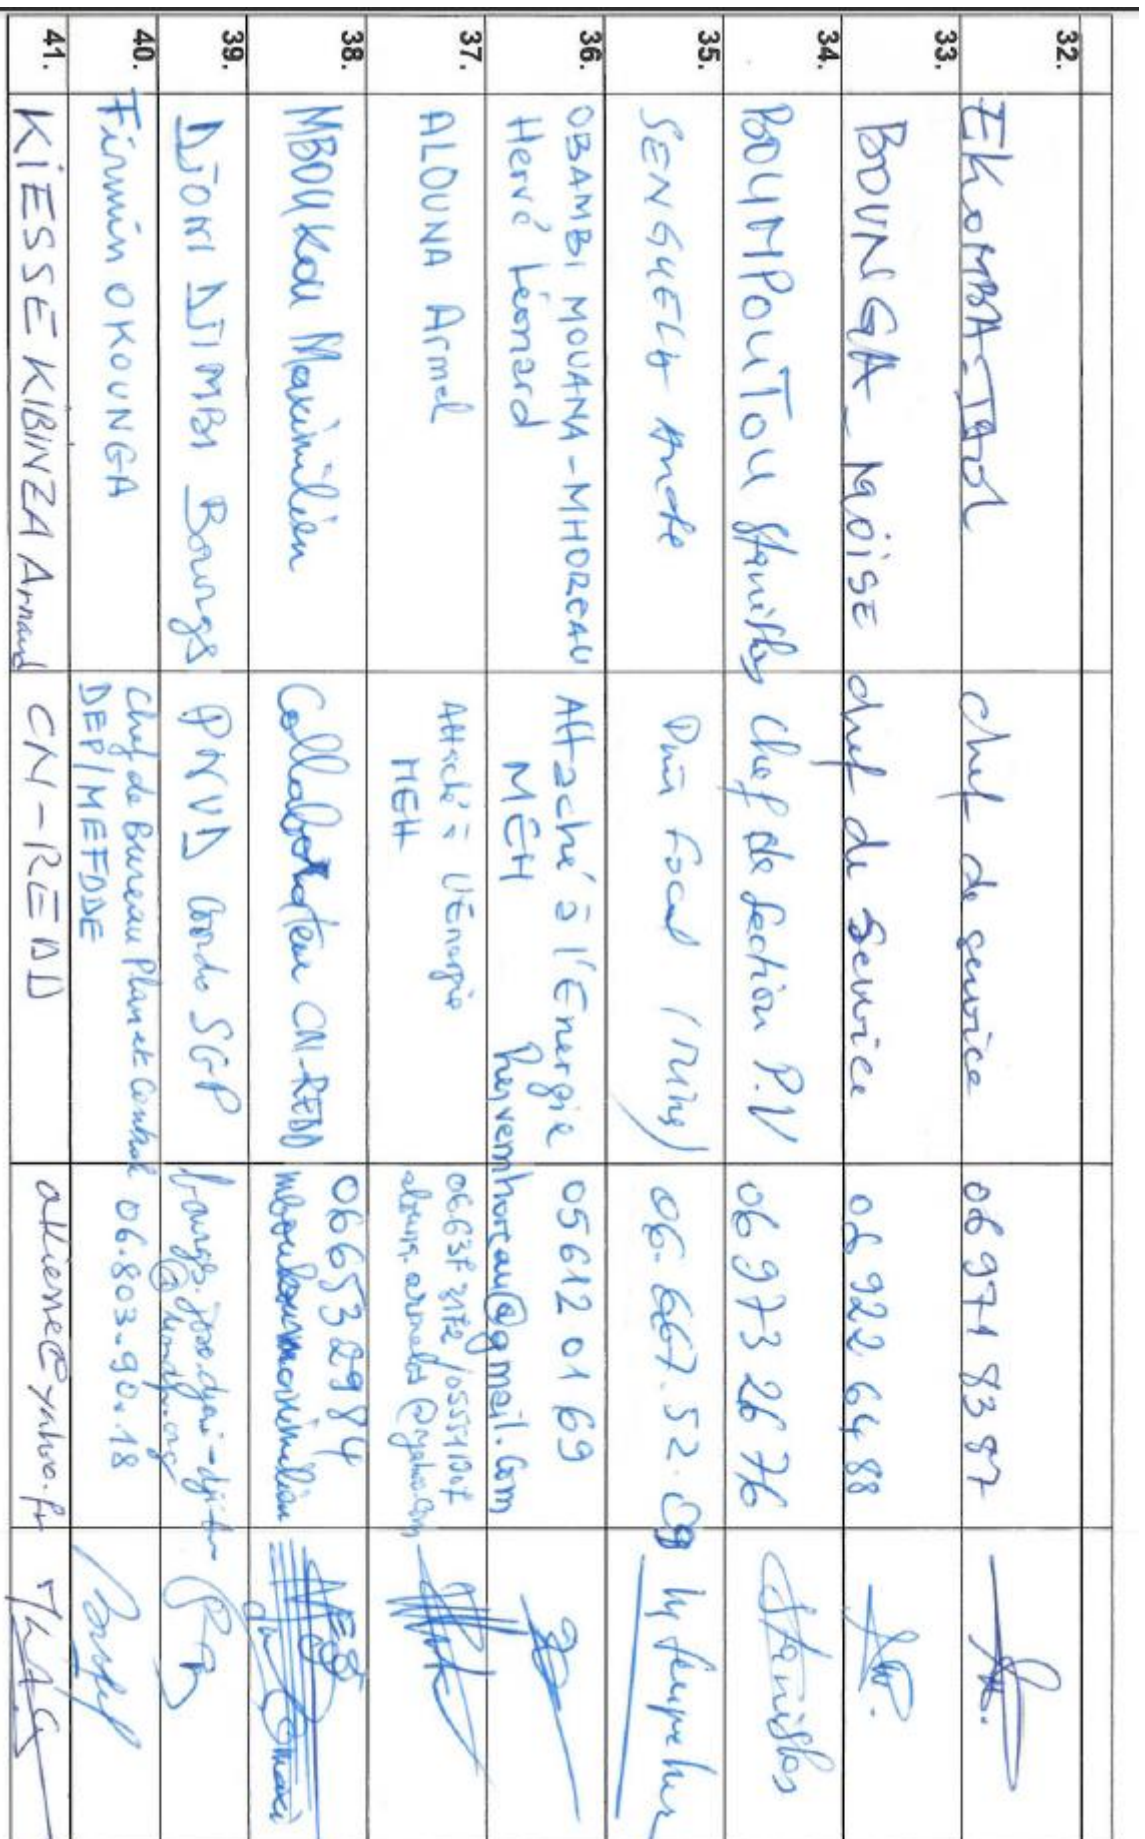 32.
EKOMBA-
chef de service
06 971 83 87
33.
BOUNGA MOISE
chef de service
06 922 64 88
34.
BOUMPOUTOU Stanislas
Chef de Section P.V
06 973 26 76
Stanislas
35.
SENGUELA
Focal
06.667.52.
36.
OBAMBI MOUANA-MHOREAU
Hervé Léonard
Attaché à l'Energie
MEH
05612 01 69
hervemhoreau@gmail.com
37.
ALOUNA Armel
Attaché à l'Energie
MEH
38.
MBOUKOU Maximilien
Collaborateur CN-REDD
06653 2984
mboukoumaximilien
39.
DJONI DJIMBI Bourges
PNUD Coordo SGP
40.
Firmin OKOUNGA
Chef de Bureau Plan et Contrôle
DEP/MEFDDE
06.803.90.18
41.
KIESSE KIBINZA Arnaud
CN-REDD